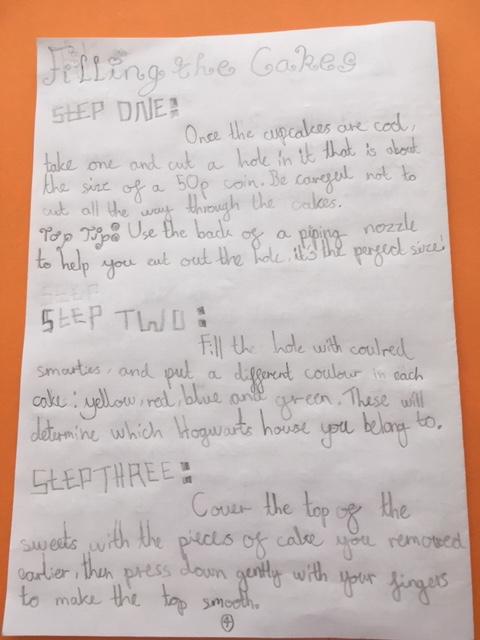 Filling the Cakes
STEP ONE:
Once the cupcakes are cool,
take one and cut a hole in it that is about
the size of a 50p coin. Be careful not to
cut all the way through the cakes.
Top Tip: Use the back of a piping nozzle
to help you cut out the hole, it's the perfect size!
STEP TWO:
Fill the hole with coulred
smarties, and put a different coulour in each
cake: yellow, red, blue and green. These will
determine which Hogwarts house you belong to.
STEP THREE:
Cover the top of the
sweets with the pieces of cake you removed
earlier, then press down gently with your fingers
to make the top smooth.
4